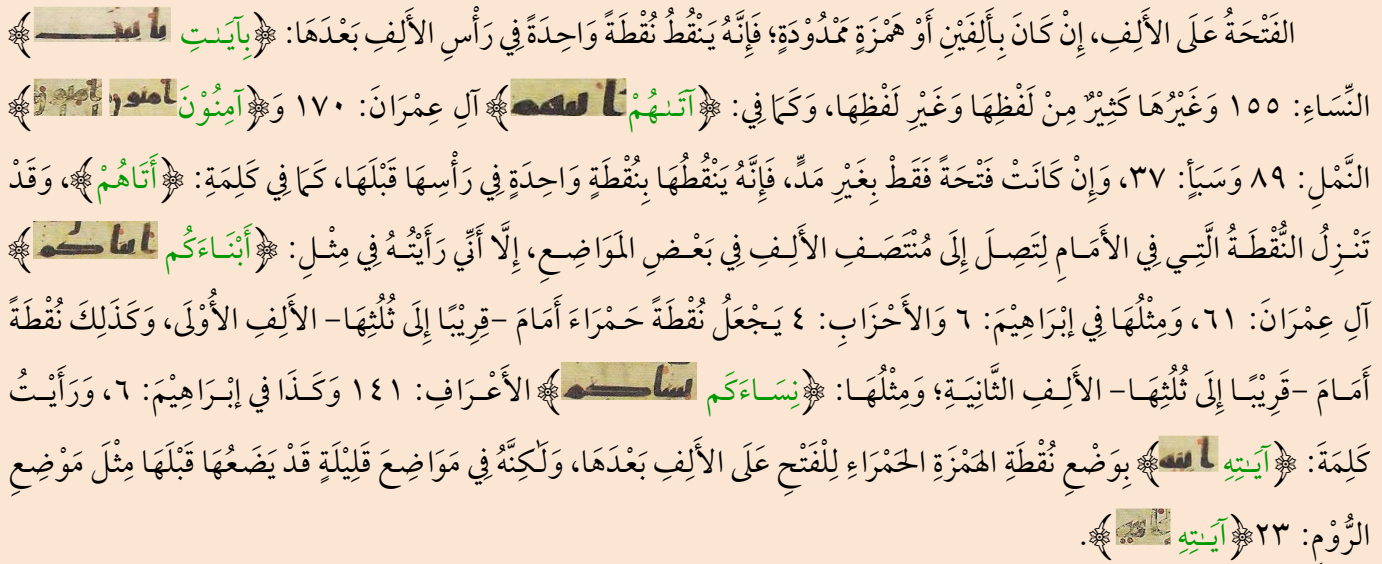 الفَتْحَةُ عَلَى الأَلِفِ، إِنْ كَانَ بِأَلِفَيْنِ أَوْ هَمْزَةٍ مَمْدُوْدَةٍ؛ فَإِنَّهُ يَنْقُطُ نُقْطَةً وَاحِدَةً فِي رَأْسِ الأَلِفِ بَعْدَهَا: ﴿بِآيَـٰتِ ﴾
النِّسَاءِ: ١٥٥ وَغَيْرُهَا كَثِيْرٌ مِنْ لَفْظِهَا وَغَيْرِ لَفْظِهَا، وَكَمَا فِي: ﴿آتَـٰهُمْ ﴾ آلِ عِمْرَانَ: ١٧٠ وَ﴿آمِنُوْنَ ﴾
النَّمْلِ: ٨٩ وَسَبَأٍ: ٣٧، وَإِنْ كَانَتْ فَتْحَةً فَقَطْ بِغَيْرِ مَدٍّ، فَإِنَّهُ يَنْقُطُهَا بِنُقْطَةٍ وَاحِدَةٍ فِي رَأْسِهَا قَبْلَهَا، كَمَا فِي كَلِمَةِ: ﴿أَتَاهُمْ﴾، وَقَدْ
تَنْـزِلُ النُّقْطَـةُ الَّتِـي فِي الأَمَـامِ لِتَصِـلَ إِلَى مُنْتَصَـفِ الأَلِـفِ فِي بَعْـضِ المَوَاضِـعِ، إِلَّا أَنِّي رَأَيْتُـهُ فِي مِثْـلِ: ﴿أَبْنَـاءَكُم ﴾
آلِ عِمْرَانَ: ٦١، وَمِثْلُهَا فِي إِبْرَاهِيْمَ: ٦ وَالأَحْزَابِ: ٤ يَجْعَلُ نُقْطَةً حَمْرَاءَ أَمَامَ –قِرِيْبًا إِلَى ثُلُثِهَا– الأَلِفِ الأُوْلَى، وَكَذَلِكَ نُقْطَةً
أَمَـامَ –قَرِيْبًـا إِلَى ثُلُثِهَـا– الأَلِـفِ الثَّانِيَـةِ؛ وَمِثْلُهَـا: ﴿نِسَـاءَكَم ﴾ الأَعْـرَافِ: ١٤١ وَكَـذَا في إِبْـرَاهِيْمَ: ٦، وَرَأَيْـتُ
كَلِمَةَ: ﴿آيَـٰتِهِ ﴾ بِوَضْعِ نُقْطَةِ الهَمْزَةِ الحَمْرَاءِ لِلْفَتْحِ عَلَى الأَلِفِ بَعْدَهَا، وَلَـٰكِنَّهُ فِي مَوَاضِعَ قَلِيْلَةٍ قَدْ يَضَعُهَا قَبْلَهَا مِثْلَ مَوْضِعِ
الرُّوْمِ: ٢٣﴿آيَـٰتِهِ ﴾.